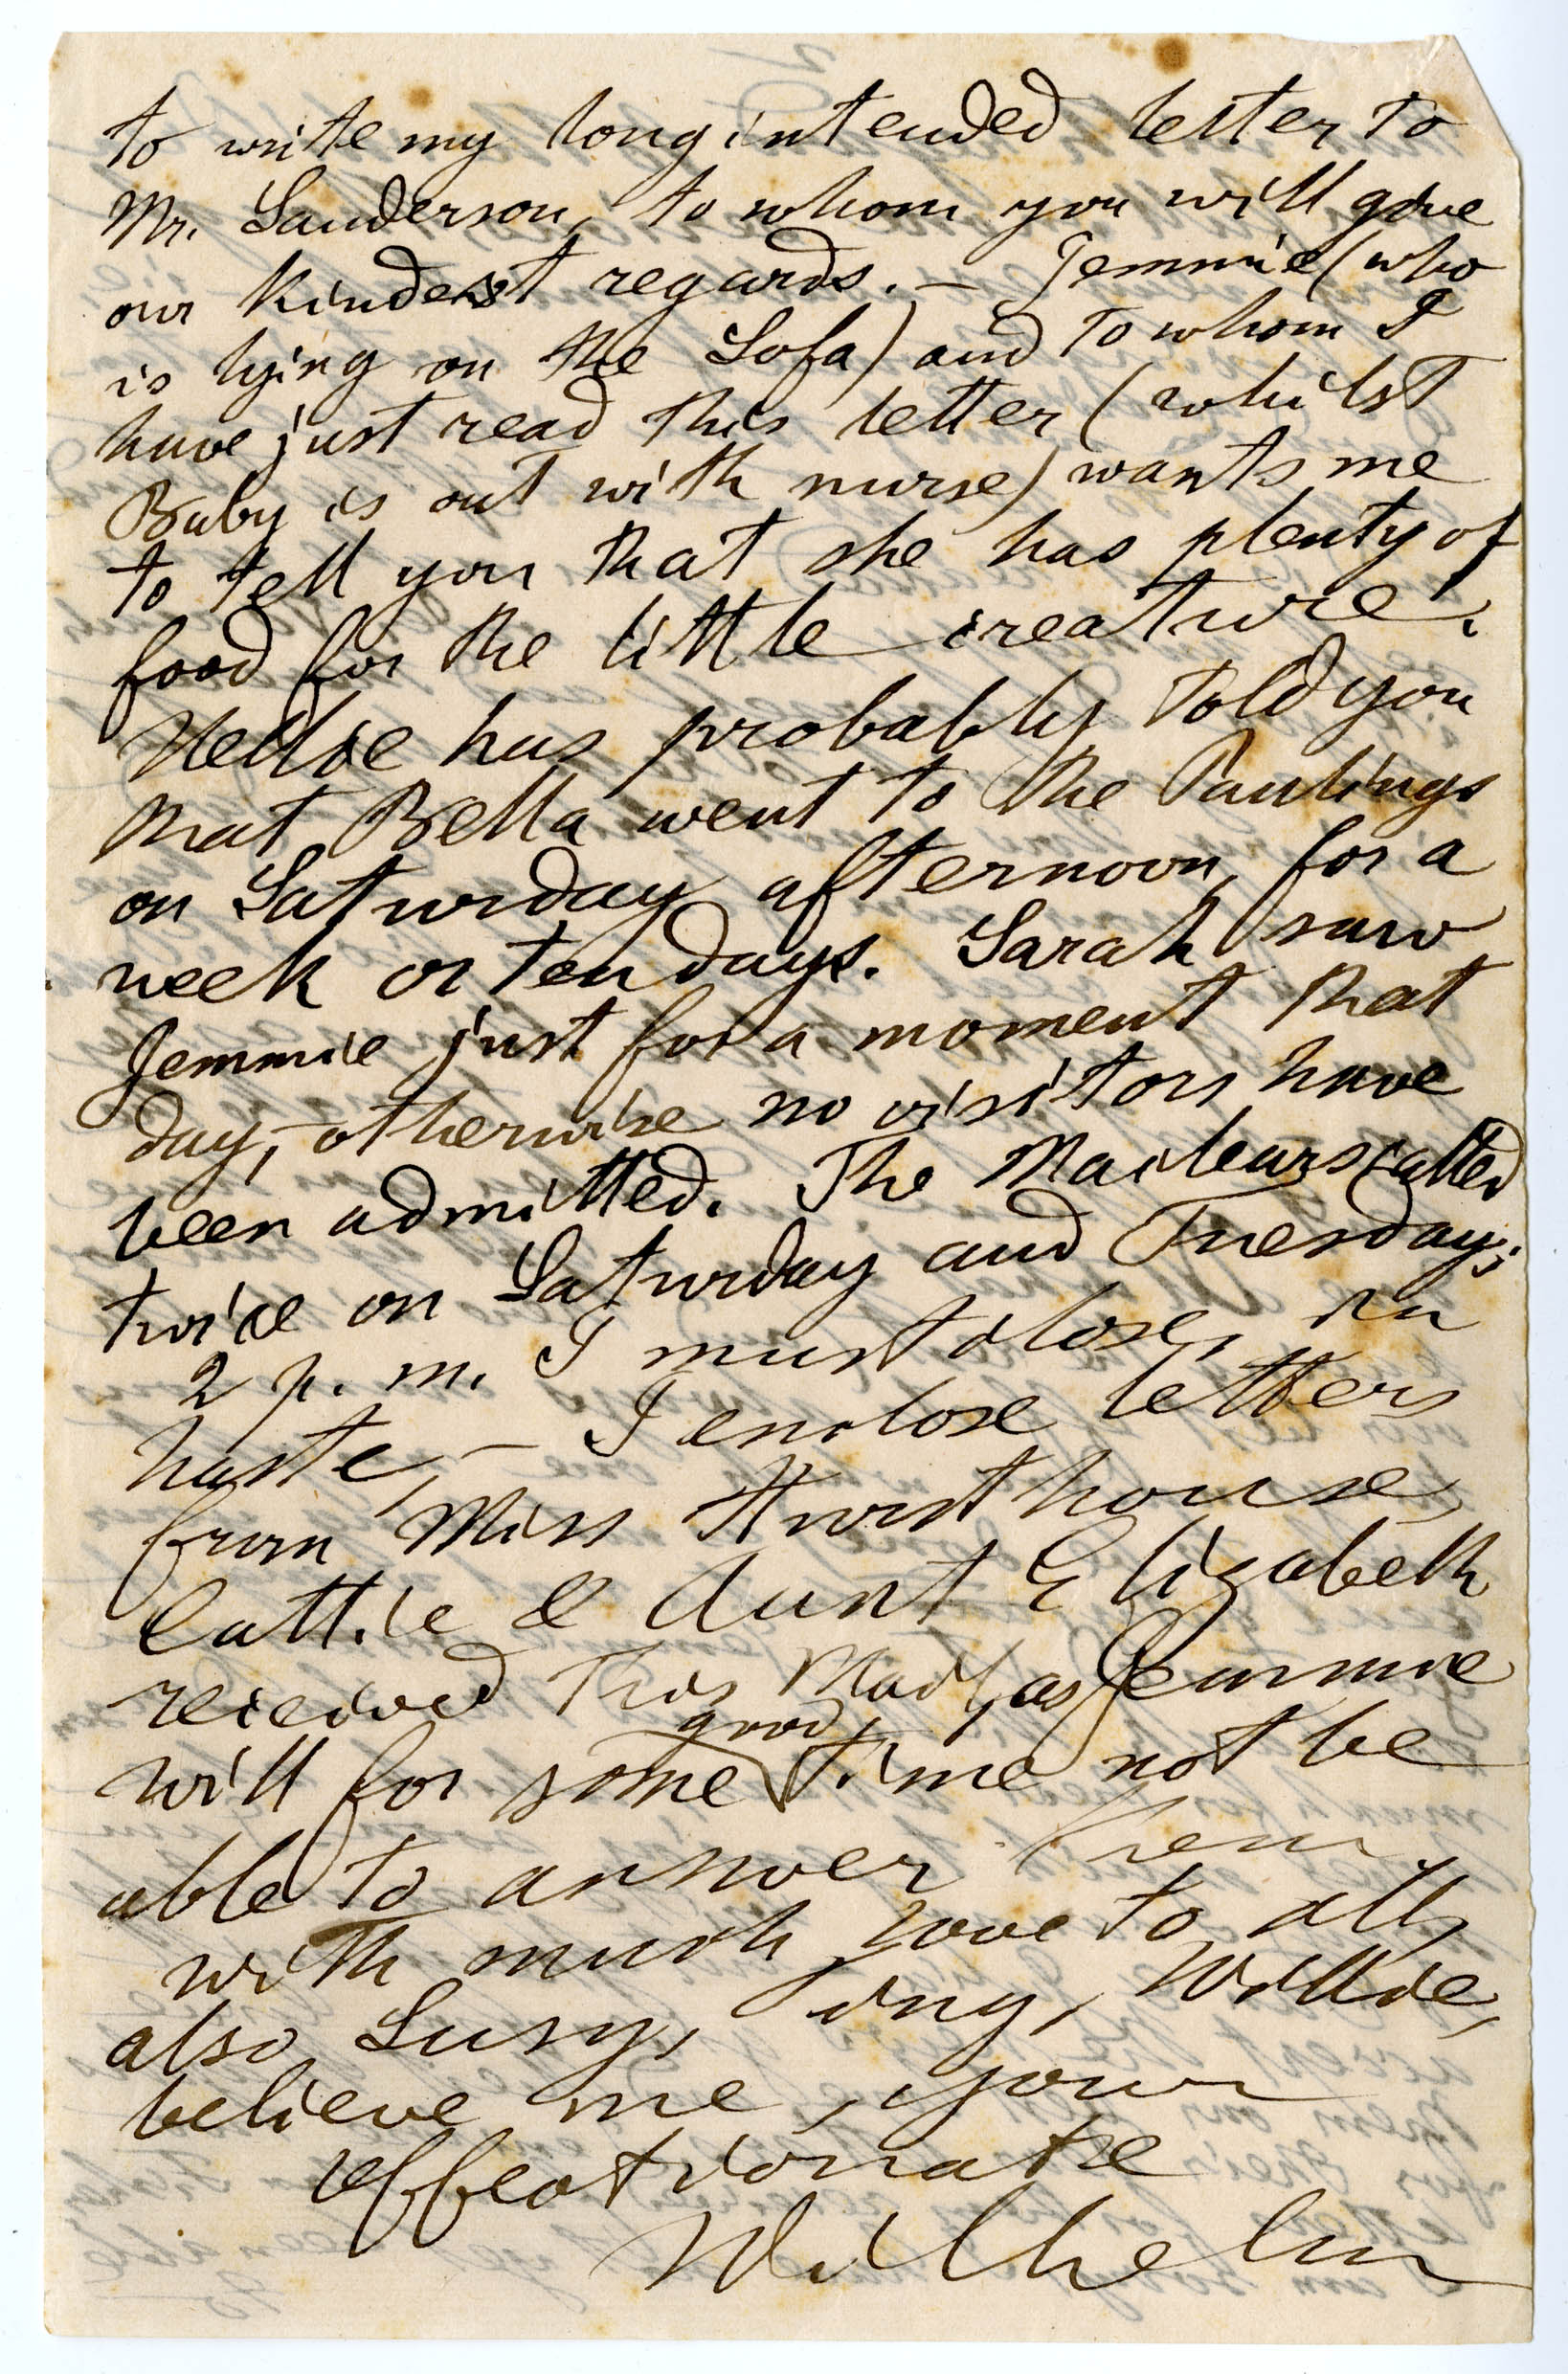 to write my long intended letter to
Mr. Sanderson, to whom you will give
our kindest regards. — Jemmie (who
is lying on the Sofa) and to whom I
have just read this letter (whilst
Baby is out with nurse) wants me
to tell you that she has plenty of
food for the little creature.
Nellie has probably told you
that Bella went to the Paulings
on Saturday afternoon, for a
week or ten days. Sarah saw
Jemmie just for a moment that
day, — otherwise no visitors have
been admitted. The called
twice on Saturday and Tuesday;
2 p. m. I must close, in
haste, — I enclose letters
from Miss Hursthouse,
Cattie & Aunt Elizabeth
received this Mail, as Jemmie
will for some good time not be
able to answer them.
with much love to all,
also Susy, Willie,
believe me, your
affectionate
Wilhelm